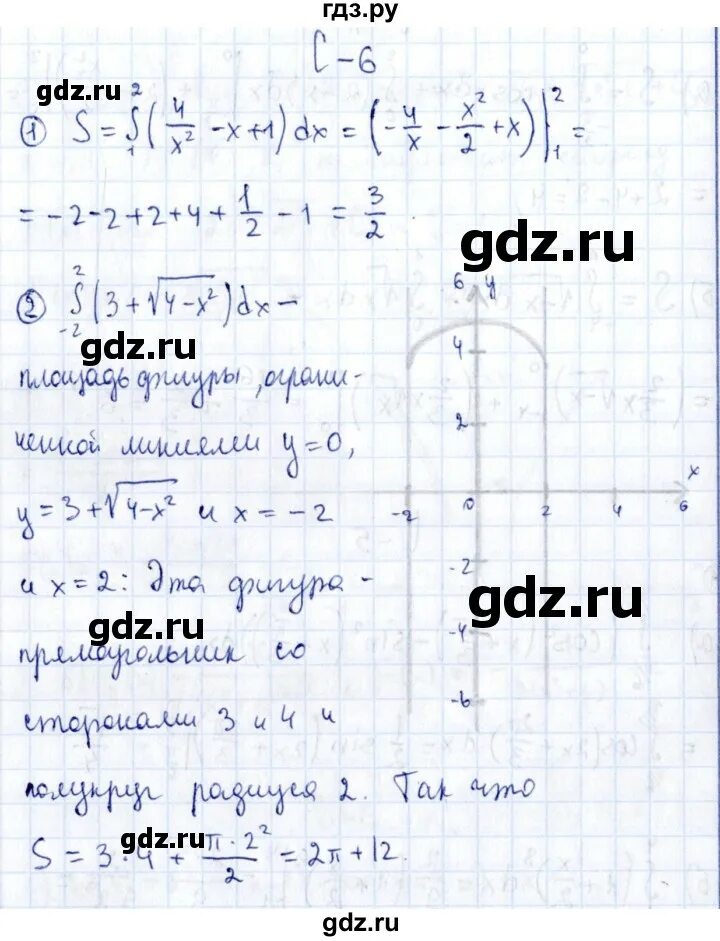 гдз.ру
С-6
gdz.ru
① S = ∫₁² (4/x² - x + 1) dx = (-4/x - x²/2 + x) |₁² =
= -2-2+2+4+1/2-1 = 3/2.
gdz.ru
② ∫₋₂² (3+√4-x²) dx –
gdz.ru
площадь фигуры, ограни-
ченной линиями y=0,
y=3+√4-x² и x=-2
и x=2: Эта фигура -
gdz.ru
прямоугольник со
сторонами 3 и 4 и
полукруг радиуса 2. Так что
gdz.ru
S = 3·4 + π·2²/2 = 2π+12.
6 y
4
2
x
-2 0 2 4 6
-2
gdz.ru
-4
-6
gdz.ru